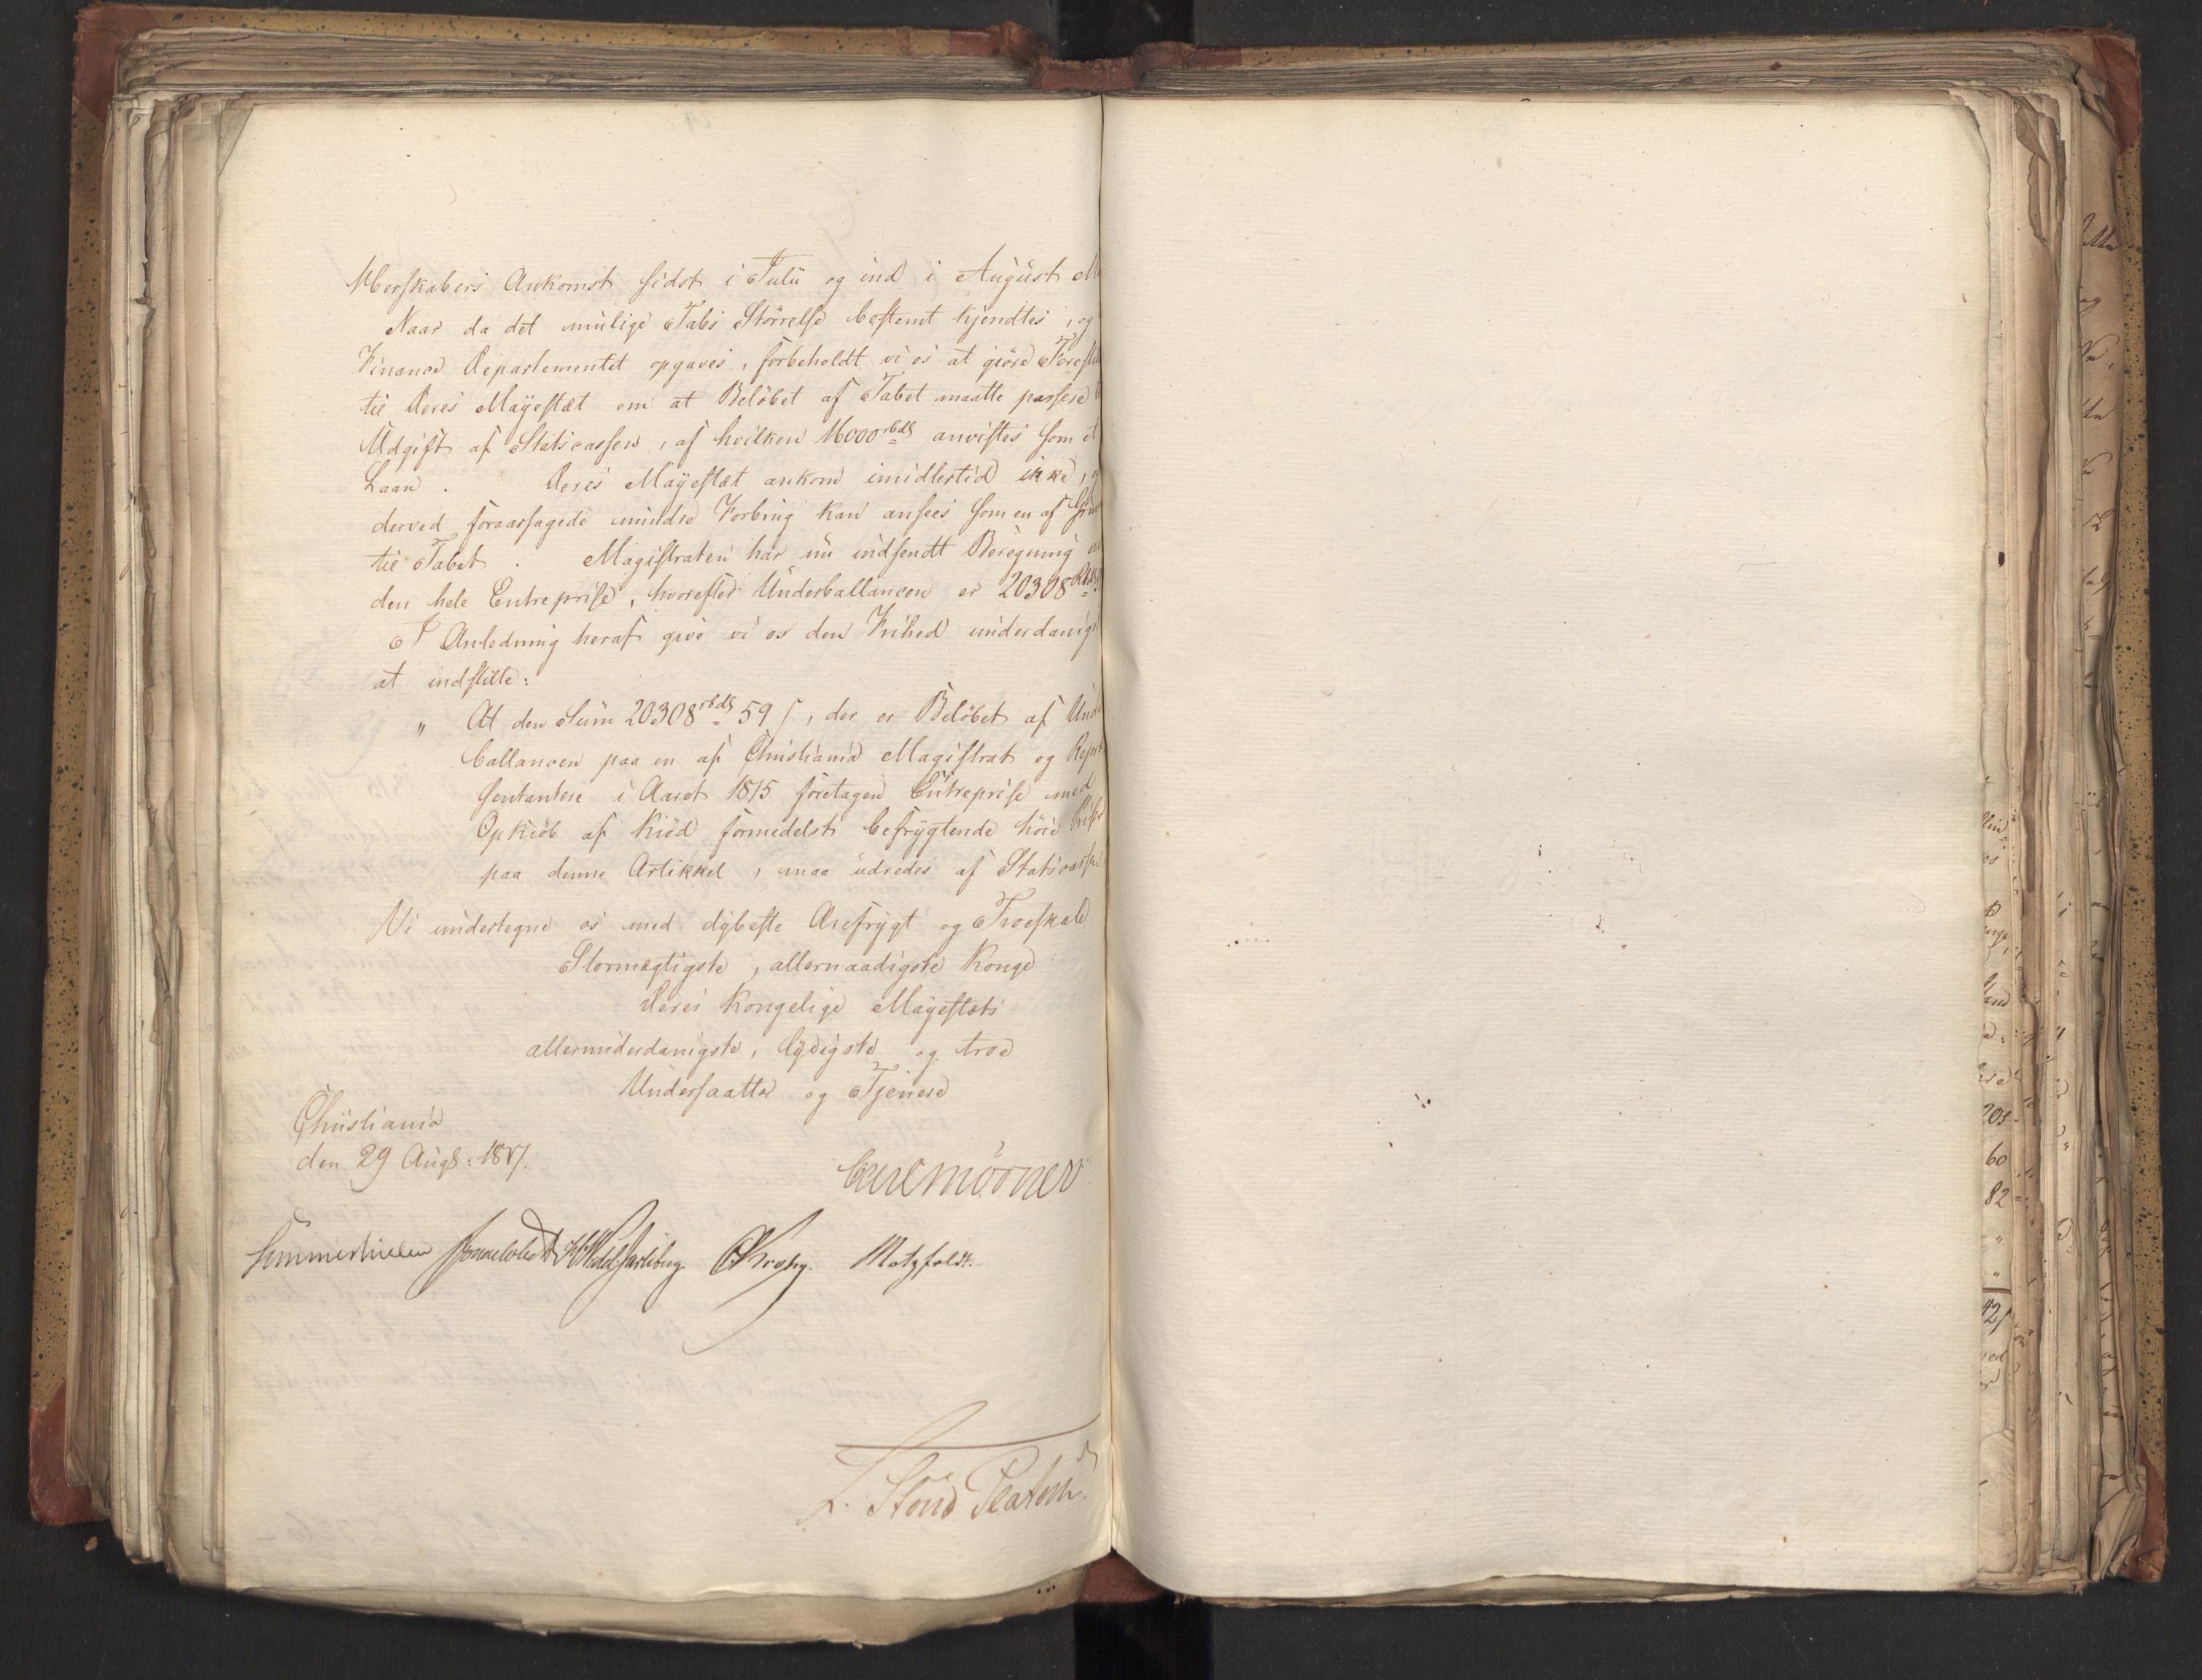 Herskabers Ankomst sidst i Julii og ind i August
Naar da det mulige Tabs Størrelse bestemt kjendtes, og
Finance Departementet opgaves, forbeholdt vi os at giøre Forest
til Deres Mayestæt om at Beløbet af Tabet maatte passere
Udgift af Statscassen, af hvilken 16000 rbdlr anvistes som et
Laan. Deres Mayestæt ankom imidlertid ikke,
derved foraarsagede mindre Forbrug kan ansees som en af
til Tabet. Magistraten har nu indsendt Beregning
den hele Entreprise, hvorefter Underballancen er 20308
I Anledning heraf give vi os den Frihed underdanigst
at indstille:
" At den Sum 20308 rbdlr 59 s, der er Beløbet af Und
ballancen paa en af Christiania Magistrat og Repræ
sentantere i Aaret 1815 foretagen Entreprise med
Opkiøb af Kiød formedelst befrygtende høie Priser
paa denne Artikkel, maa udredes af Statscassen
Vi undertegne os med dybeste Ærefrygt og Troeskab
Stormægtigste, allernaadigste Konge
Deres Kongelige Mayestæts
allerunderdanigste, lydigste og troe
Undersaatter og Tjenere
Christiania
den 29 Augs: 1817.
Carl Mörner
Sommerhielm Jonas Collett HWedelJarlsberg. CKrohg. Motzfeldt.
L. Stoud Platou.